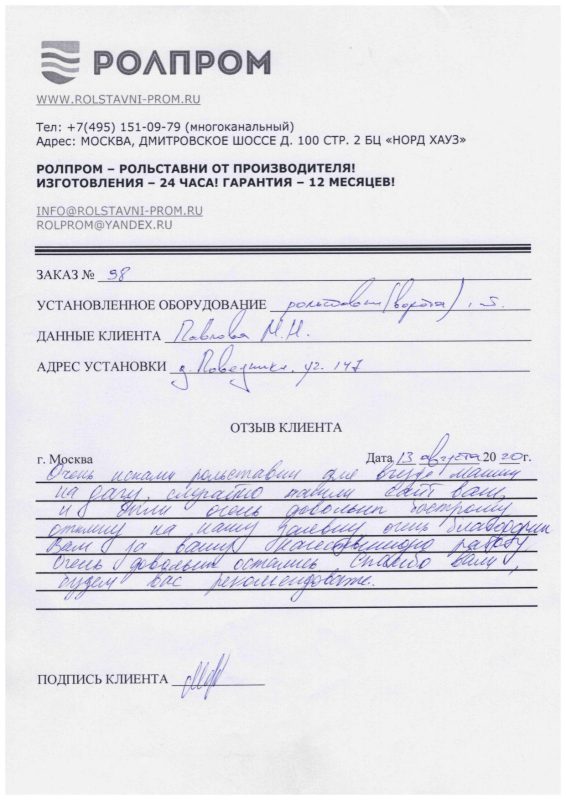 РОЛПРОМ
WWW.ROLSTAVNI-PROM.RU
Тел: +7(495) 151-09-79 (многоканальный)
Адрес: МОСКВА, ДМИТРОВСКОЕ ШОССЕ Д. 100 СТР. 2 БЦ «НОРД ХАУЗ»
РОЛПРОМ – РОЛЬСТАВНИ ОТ ПРОИЗВОДИТЕЛЯ!
ИЗГОТОВЛЕНИЯ – 24 ЧАСА! ГАРАНТИЯ – 12 МЕСЯЦЕВ!
INFO@ROLSTAVNI-PROM.RU
ROLPROM@YANDEX.RU
ЗАКАЗ № 98
УСТАНОВЛЕННОЕ ОБОРУДОВАНИЕ рольставни (ворота),
ДАННЫЕ КЛИЕНТА Павлова М.Н.
АДРЕС УСТАНОВКИ д. Поведники, уч. 147
ОТЗЫВ КЛИЕНТА
г. Москва Дата 13 августа 2020г.
Очень искали рольставни для въезда машины
на дачу, случайно нашли сайт ваш,
и были очень довольны быстрому
отклику на нашу заявку очень благодарны
Вам за вашу качественную работу
Очень довольны остались спасибо вам,
будем вас рекомендовать.
ПОДПИСЬ КЛИЕНТА